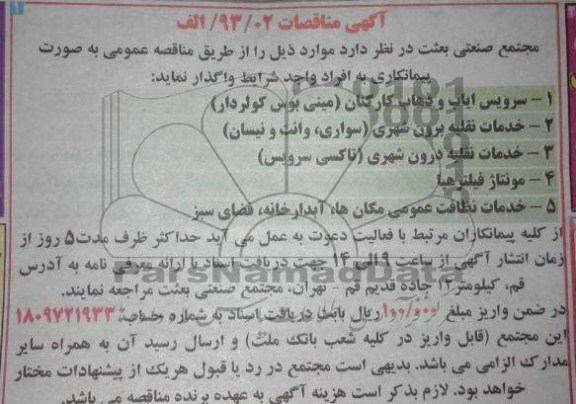 آگهی مناقصات ۹۳/۰۲/الف
مجتمع صنعتی بعثت در نظر دارد موارد ذیل را از طریق مناقصه عمومی به صورت
پیمانکاری به افراد واجد شرایط واگذار نماید:
۱ – سرویس ایاب و ذهاب کارکنان (مینی بوس کولردار)
۲ – خدمات نقلیه برون شهری (سواری، وانت و نیسان)
۳ – خدمات نقلیه درون شهری (تاکسی سرویس)
۴ – مونتاژ فیلترهیا
۵ – خدمات نظافت عمومی مکان ها، آبدارخانه، فضای سبز
از کلیه پیمانکاران مرتبط با فعالیت دعوت به عمل می آید حداکثر ظرف مدت۵ روز از
زمان انتشار آگهی از ساعت ۹ الی ۱۴ جهت دریافت اسناد با ارائه معرفی نامه به آدرس
قم، کیلومتر۱۲ جاده قدیم قم – تهران، مجتمع صنعتی بعثت مراجعه نمایند.
ParsNamadData
در ضمن واریز مبلغ ۱۰۰/۰۰۰ ریال بابت دریافت اسناد به شماره حساب: ۱۸۰۹۷۲۱۹۳۳
این مجتمع (قابل واریز در کلیه شعب بانک ملت) و ارسال رسید آن به همراه سایر
مدارک الزامی می باشد. بدیهی است مجتمع در رد یا قبول هریک از پیشنهادات مختار
خواهد بود. لازم بذکر است هزینه آگهی به عهده برنده مناقصه می باشد.